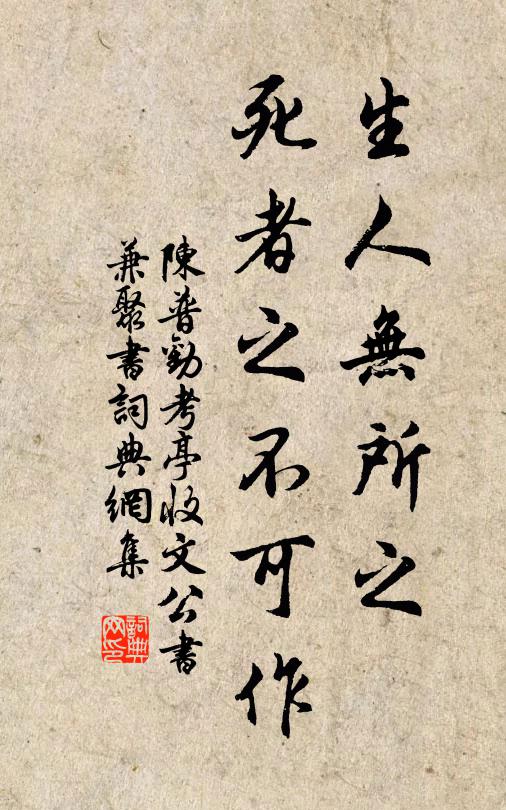 生人無所之
死者之不可作
陳普勸考亭收文公書
兼聚書詞典網集
詞典网印